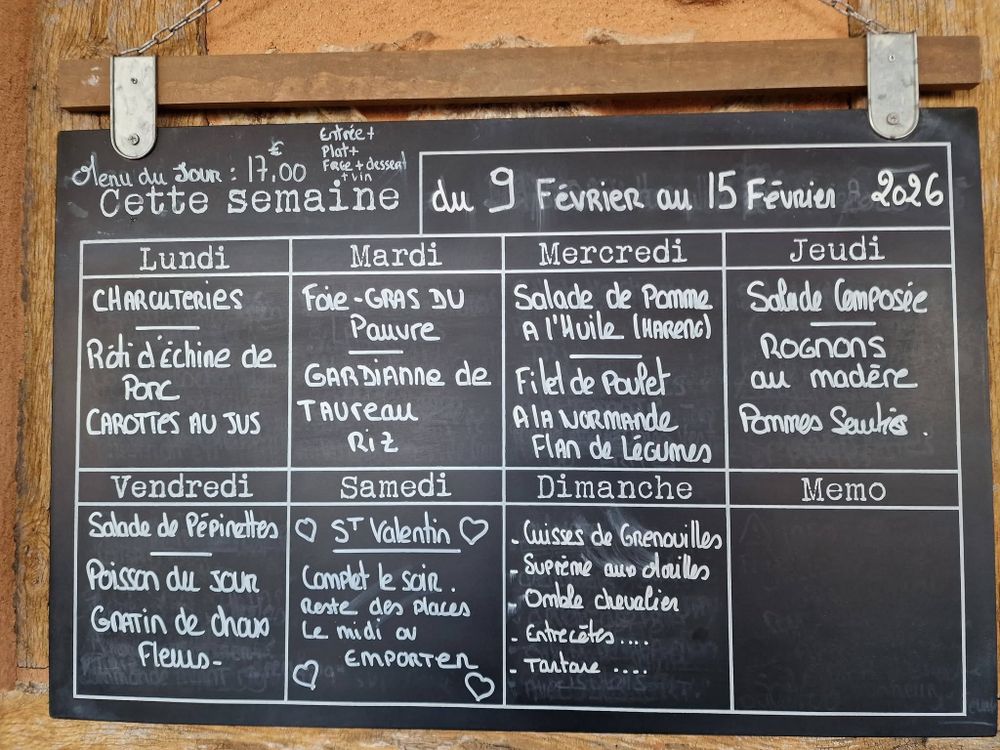 Menu du Jour : 17,00 €
Entrée +
Plat +
Face + dessert
+ vin
Cette semaine
du 9 Février au 15 Février 2026
Lundi
CHARCUTERIES
Rôti d'échine de
Porc
CAROTTES AU JUS
Mardi
Foie-GRAS DU
Pauvre
GARDIANNE de
TAUREAU
RIZ
Mercredi
Salade de Pomme
A l'Huile (HARENG)
Filet de Poulet
A la NORMANDE
Flan de Légumes
Jeudi
Salade Composée
ROGNONS
au madère
Pommes Sautées.
Vendredi
Salade de Pépinettes
Poisson du jour
Gratin de choux
Fleurs-
Samedi
ST Valentin
Complet le soir.
Reste des places
Le midi ou
EMPORTER
Dimanche
- Cuisses de Grenouilles
- Suprême aux Morilles
- Omble chevalier
- Entrecôtes....
- Tartare ....
Memo